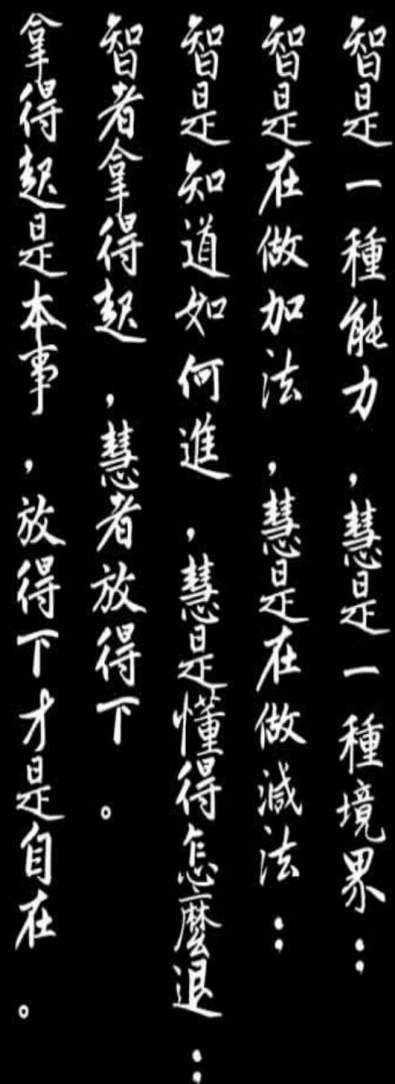 智是一種能力，慧是一種境界：
智是在做加法，慧是在做減法：
智是知道如何進，慧是懂得怎麼退：
智者拿得起，慧者放得下。
拿得起是本事，放得下才是自在。